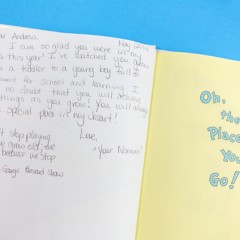 Dear Andrew,
I am so glad you were in my
class this year! I've watched you grow
from a toddler to a young boy full of
for school and learning. I
no doubt that you will
things as you grow! You will always
a special place in my heart!
Love,
"Your Norman"
stop playing
grow old; we
because we stop
-George Bernard Shaw
Oh,
the
Places
You
Go!